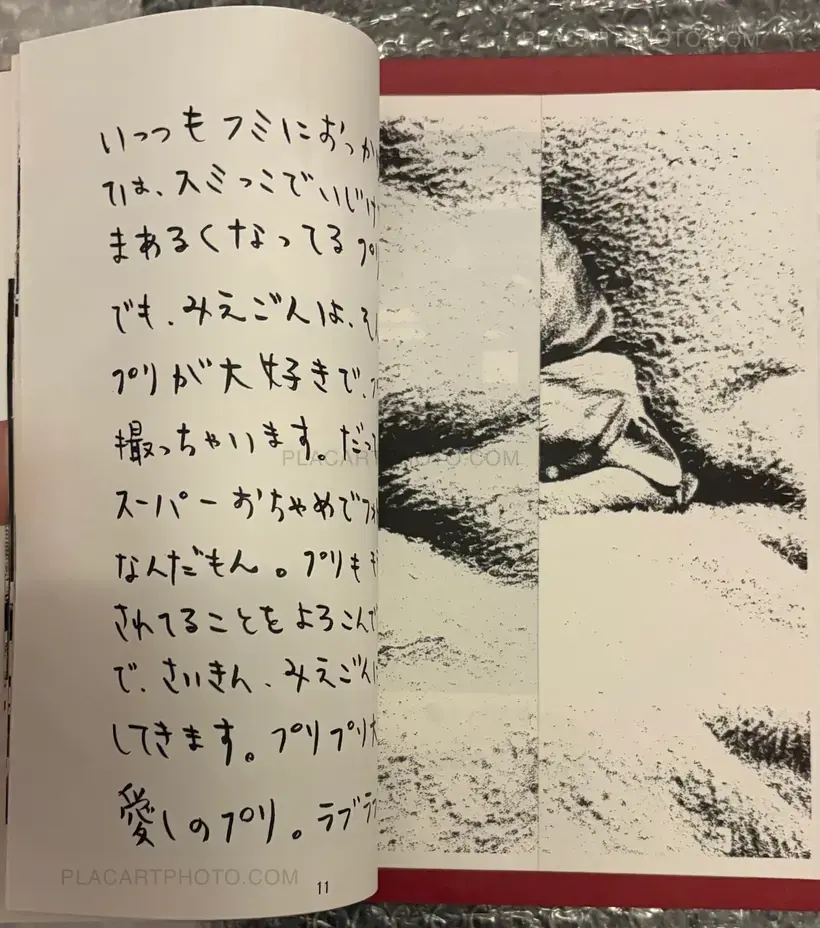 PLACARTPHOTO.COM
いっつもフミにおっか
ては、スミっこでいじけ
まあるくなってるプリ
でも、みえごんは、そ
プリが大好きで、
撮っちゃいます。だって
PLACARTPHOTO.COM
スーパーおちゃめでフォ
なんだもん。プリも
されてることをよろこんで
で、さいきん、みえごんに
してきます。プリプリ大
愛しのプリ。ラブラ
PLACARTPHOTO.COM
11